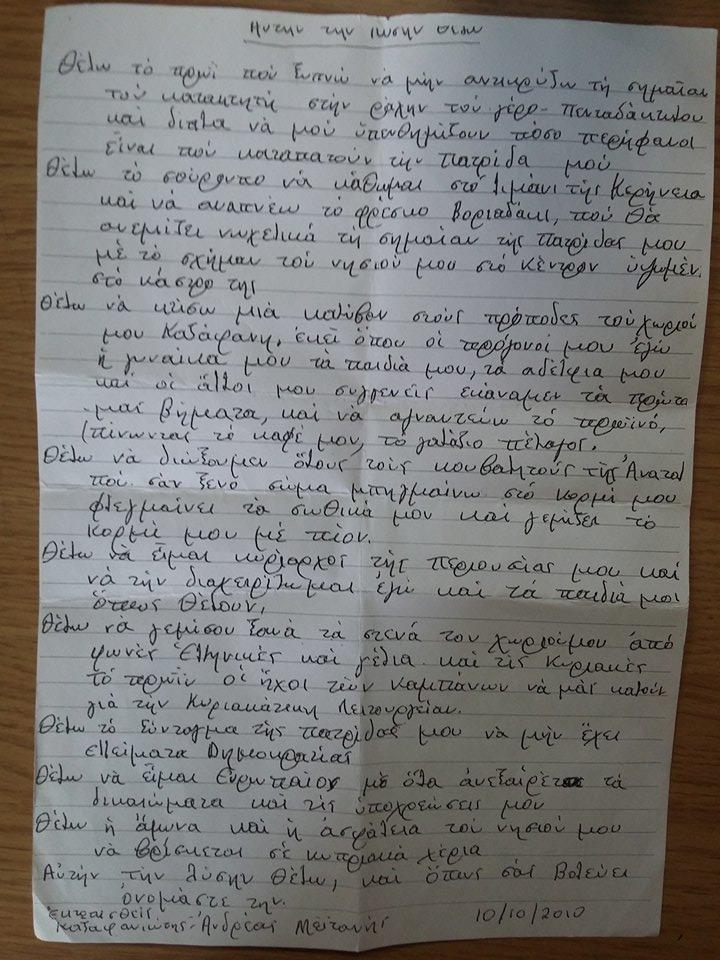 Αυτην την λυσην θελω
Θέλω τό πρωί πού ξυπνώ νά μήν αντικρύζω τή σημαίαν
τού κατακτητή στήν ράχην τού γέρο-Πενταδάκτυλου
καί δίπλα νά μού ύπενθημίζουν πόσο περήφανοι
είναι πού καταπατούν τήν πατρίδα μού
Θέλω τό σούρουπο νά κάθημαι στό λιμάνι τής Κερήνεια
καί νά αναπνέω τό φρέσκο Βοριαδάκι, πού θά
ανεμίζει νωχελικά τή σημαίαν τής πατρίδας μου
μέ τό σχήμαν τού νησιού μου στό κέντρον ύψωμέν.
στό κάστρο της
Θέλω νά κτίσω μιά καλύβαν στούς πρόποδες τού χωριού
μου Καζάφανη, έκεί όπου οι πρόγονοί μου έγώ
ή γυναίκα μου τά παιδιά μου, τά αδέλφια μου
καί οί άλλοι μου συγγενείς εκάναμεν τά πρώτα
μας βήματα, καί νά αγναντεύω τό πρωϊνό,
πίνωντας τό καφέ μου, τό γαλάζιο πέλαγος.
Θέλω νά διώξουμεν όλους τούς κουβαλητούς τής Άνατολ
πού σάν ξένο σώμα μπηγμαίνω στό κορμί μου
φλεγμαίνει τά σωθικά μου καί γεμίζει τό
κορμί μου μέ πίον.
Θέλω νά είμαι κύριαρχος τής περιουσίας μου καί
νά τήν διαχειρίζωμαι έγώ καί τά παιδιά μου
όπως θέλουν,
Θέλω νά γεμίσου ξανά τά στενά του χωριούμου άπό
φωνές Έλληνικές καί γέλια καί τίς Κυριακές
τό πρωίν οι ήχοι τών καμπάνων νά μάς καλούν
γιά τήν Κυριακάτικη Λειτουργείαν.
Θέλω τό Σύνταγμα τής πατρίδας μου νά μήν έχει
ελλείματα Δημοκρατίας
Θέλω νά είμαι Ευρωπαίος μέ όλα άνεξαίρετα τά
δικαιώματα καί τίς ύποχρεώσεις μου
Θέλω ή άμυνα καί ή άσφάλεια τού νησιού μου
νά βρίσκεται σέ κυπριακά χέρια
Αύτήν τήν λύσην θέλω, καί όπως σάς βολεύει
όνομάστε την.
Καζαφανιώτης - Άνδρέας 10/10/2010